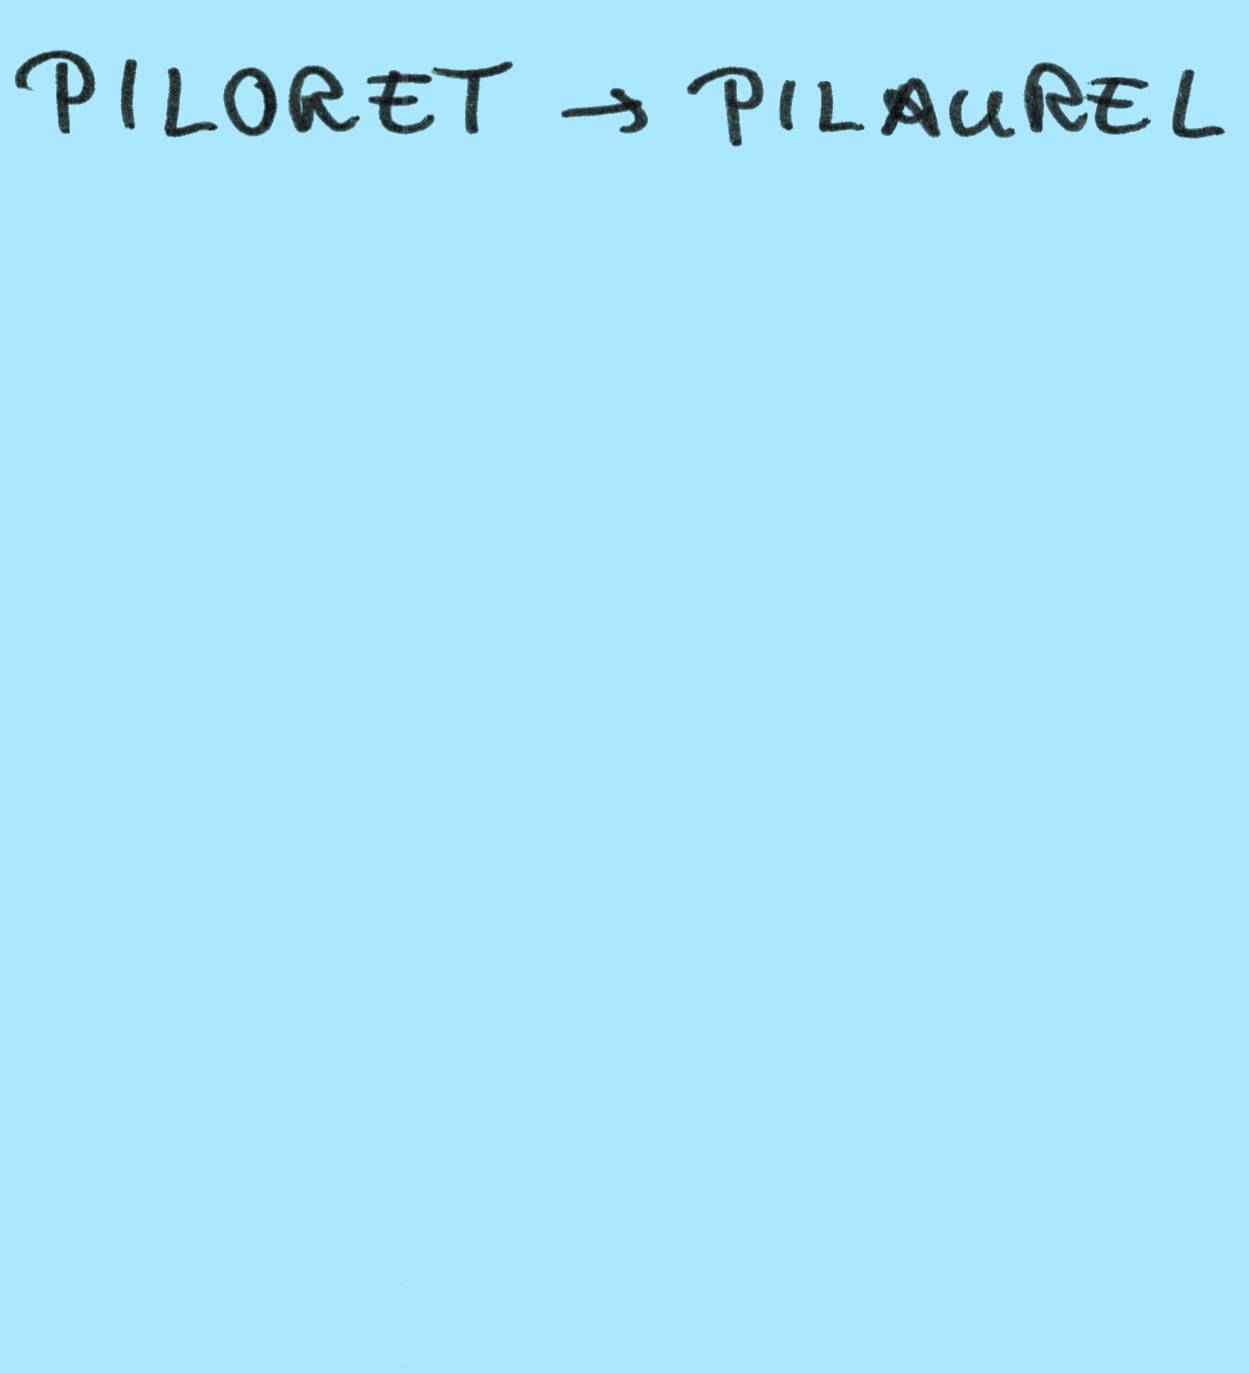 PILORET → PILAUREL